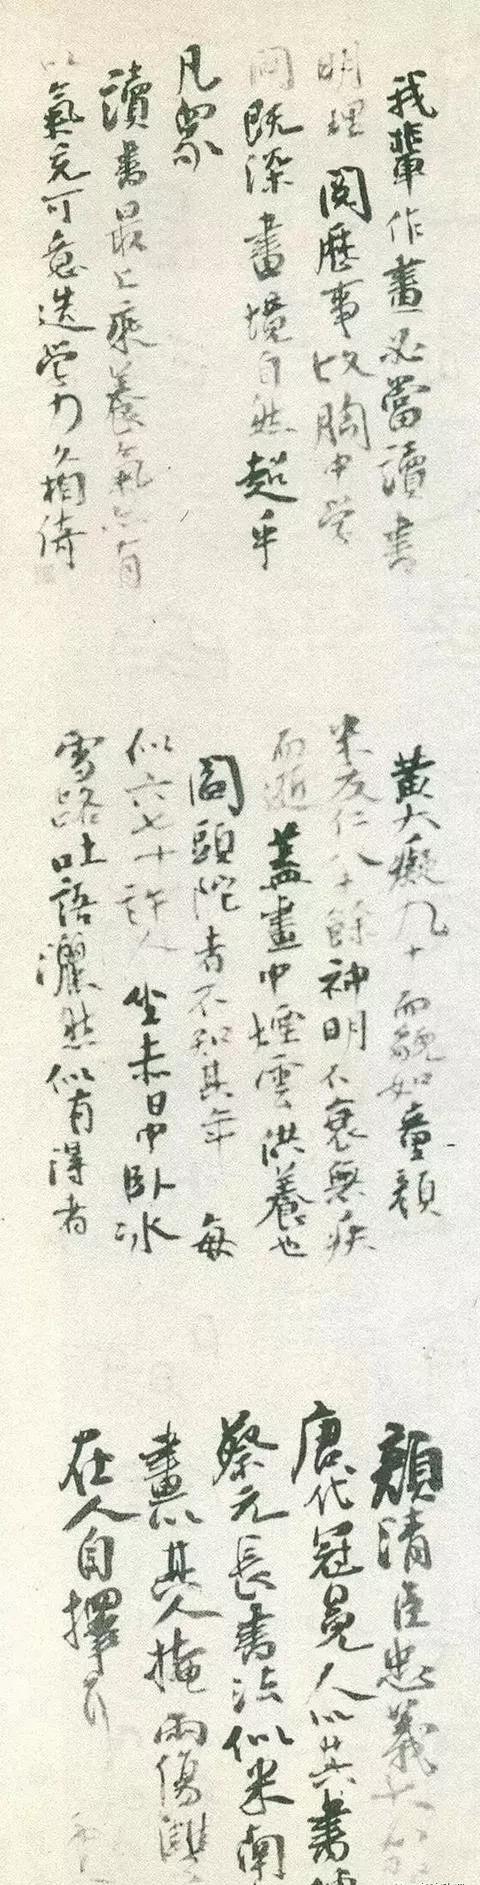 我輩作畫必當讀書
明理閱歷事故胸中學
問既深畫境自然超乎
凡衆
讀書最上乘養氣亦有
以氣充可意逸學力久相倚
黃大癡九十而貌如童顏
米友仁八十餘神明不衰無疾
而逝蓋畫中煙雲供養也
閻頭陀者不知其年每
似六七十許人坐赤日中臥冰
雪路吐語灑然似有得者
顏清臣忠義大節
唐代冠冕人以其書
蔡元長書法似米南
畫以其人掩兩傷雙
在人自擇耳